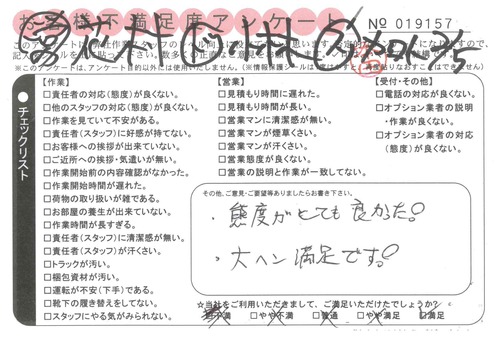 お客様不満足度アンケート
No 019157
チェックリスト
【作業】
□責任者の対応(態度)が良くない。
□他のスタッフの対応(態度)が良くない。
□作業を見ていて不安がある。
□責任者(スタッフ)に好感が持てない。
□お客様への挨拶が出来ていない。
□ご近所への挨拶・気遣いが無い。
□作業開始前の内容確認がなかった。
□作業開始時間が遅れた。
□荷物の取り扱いが雑である。
□お部屋の養生が出来ていない。
□作業時間が長すぎる。
□責任者(スタッフ)に清潔感が無い。
□責任者(スタッフ)が汗くさい。
□トラックが汚い。
□梱包資材が汚い。
□運転が不安(下手)である。
□靴下の履き替えをしてない。
□スタッフにやる気がみられない。
【営業】
□見積もり時間に遅れた。
□見積もり時間が長い。
□営業マンに清潔感が無い。
□営業マンが煙草くさい。
□営業マンが汗くさい。
□営業態度が良くない。
□営業の説明と作業が一致してない。
【受付・その他】
□電話の対応が良くない。
□オプション業者の説明
・作業が良くない。
□オプション業者の対応
(態度)が良くない。
その他、ご意見・ご要望等ありましたらお書き下さい。
・態度がとても良かった!
・大ヘン満足です!
☆当社をご利用いただきまして、ご満足いただけたでしょうか?
□不満 □やや不満 □普通 □やや満足 □満足